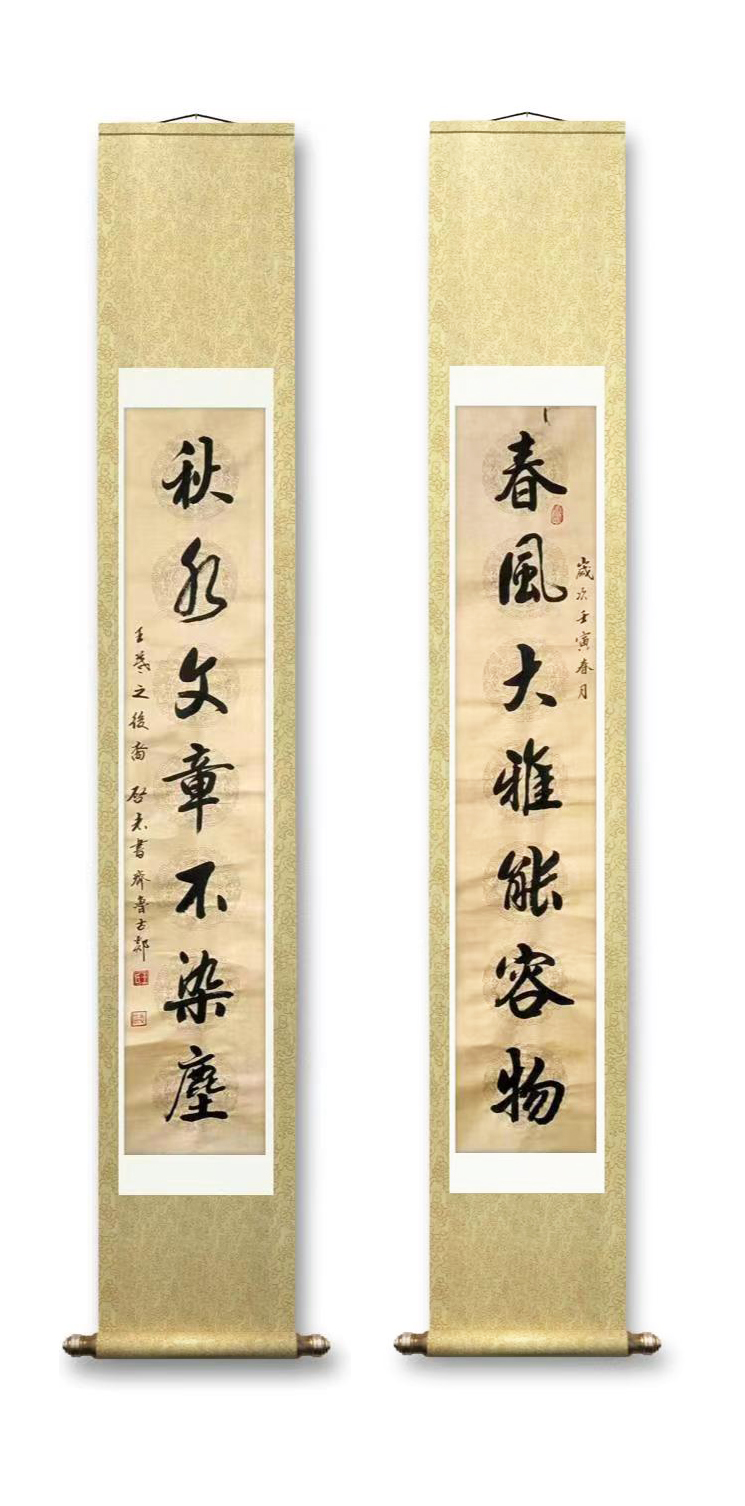 春風大雅能容物
歲次壬寅春月
秋水文章不染塵
王羲之後裔 啟君書齊魯古郡